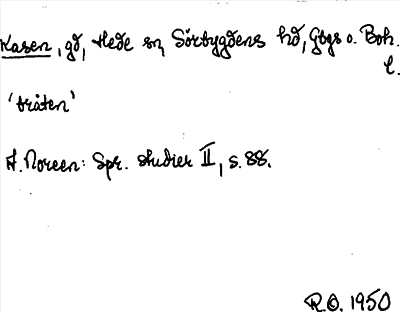 Kasen, gd, Hede sn, Sörbygdens hd, Gbgs o. Boh.
l.
'tråten'
A. Noreen: Spr. studier II, s. 88.
R.O. 1950